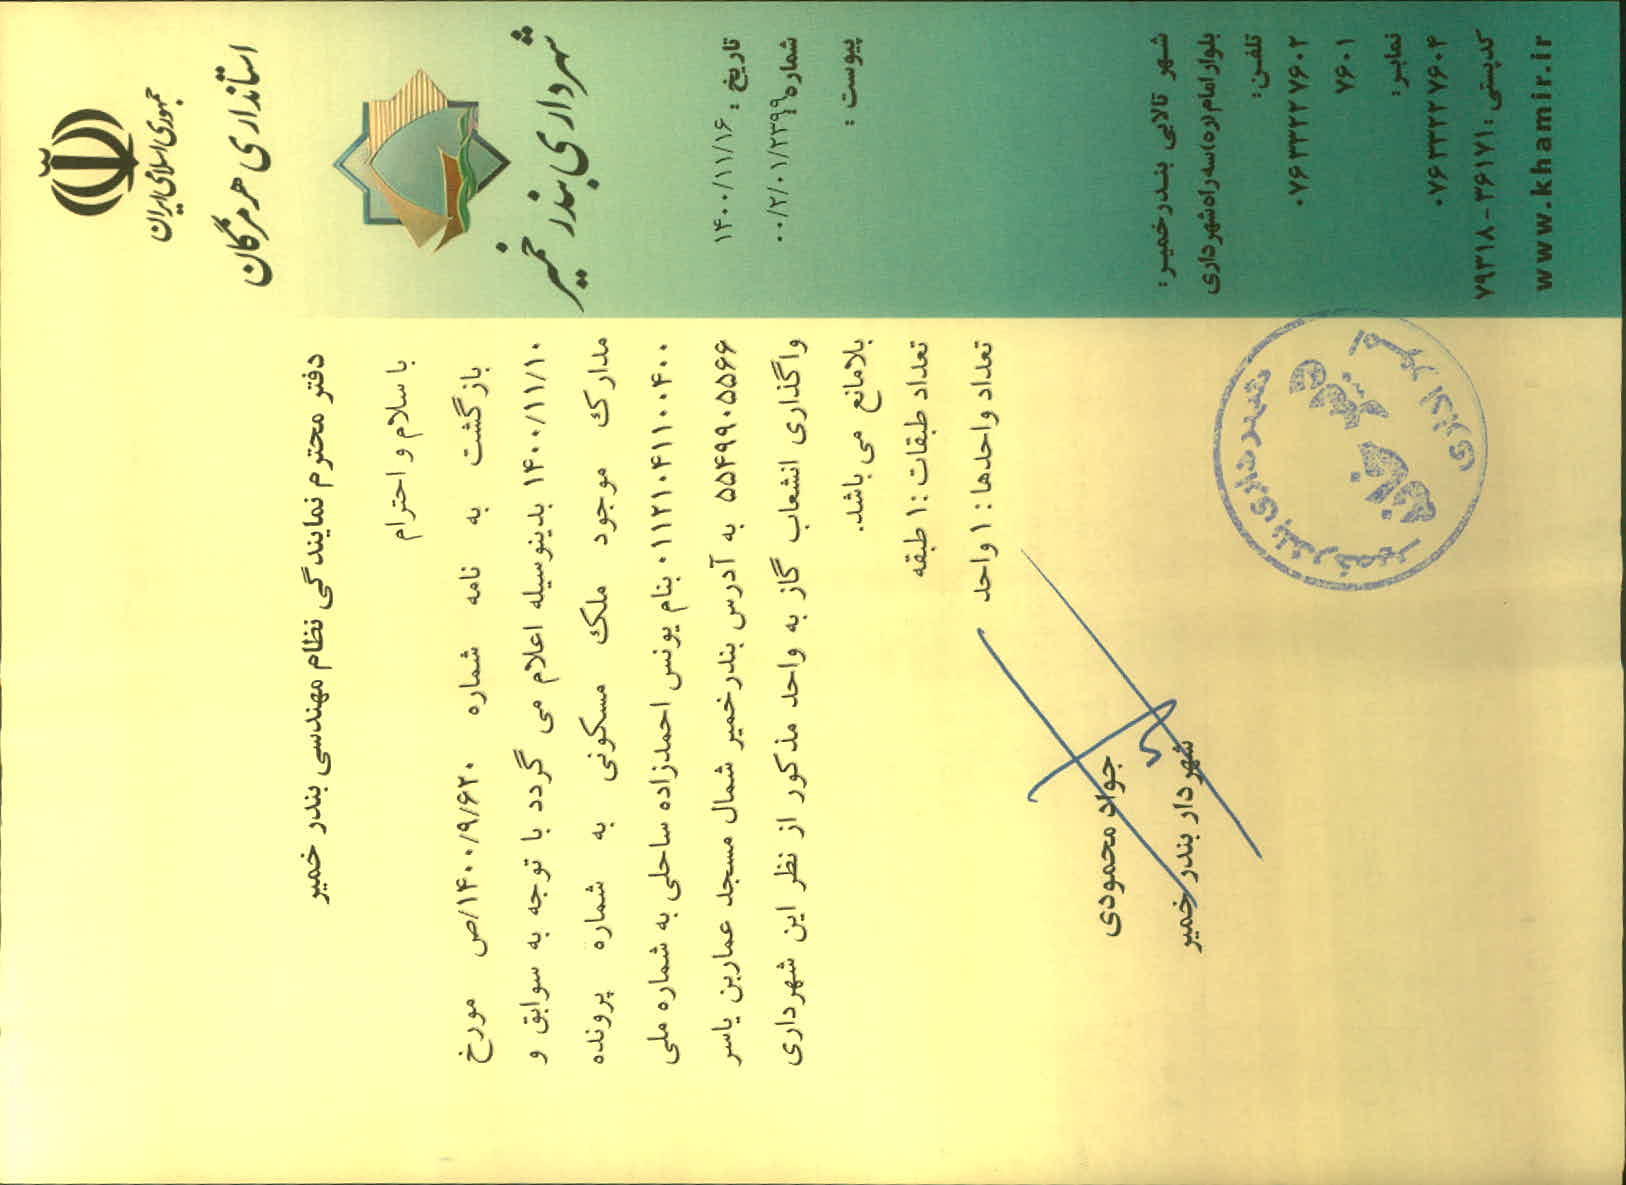 جمهوری اسلامی ایران
استانداری هرمزگان
شهرداری بندر خمیر
تاریخ : ۱۴۰۰/۱۱/۱۶
شماره: ۰۰/۲/۰۱/۲۳۹۹
پیوست :
دفتر محترم نمایندگی نظام مهندسی بندر خمیر
با سلام و احترام
بازگشت به نامه شماره ۱۴۰۰/۹/۶۲۰/ص مورخ
۱۴۰۰/۱۱/۱۰ بدینوسیله اعلام می گردد با توجه به سوابق و
مدارک موجود ملک مسکونی به شماره پرونده
۰۱۱۲۱۰۴۱۱۰۰۴۰۰ بنام یونس احمدزاده ساحلی به شماره ملی
۵۵۴۹۹۰۵۵۶۶ به آدرس بندرخمیر شمال مسجد عماربن یاسر
واگذاری انشعاب گاز به واحد مذکور از نظر این شهرداری
بلامانع می باشد.
تعداد طبقات :۱ طبقه
تعداد واحدها : ۱ واحد
جواد محمودی
شهردار بندر خمیر
شهرداری بندر خمیر
دبیرخانه
امور اداری
شهر تالابی بندرخمیر:
بلوار امام (ره) سه راه شهرداری
تلفن:
۰۷۶۳۳۲۲۷۶۰۲
۷۶۰۱
نمابر:
۰۷۶۳۳۲۲۷۶۰۴
کدپستی: ۳۶۱۷۱-۷۹۳۱۸
www.khamir.ir